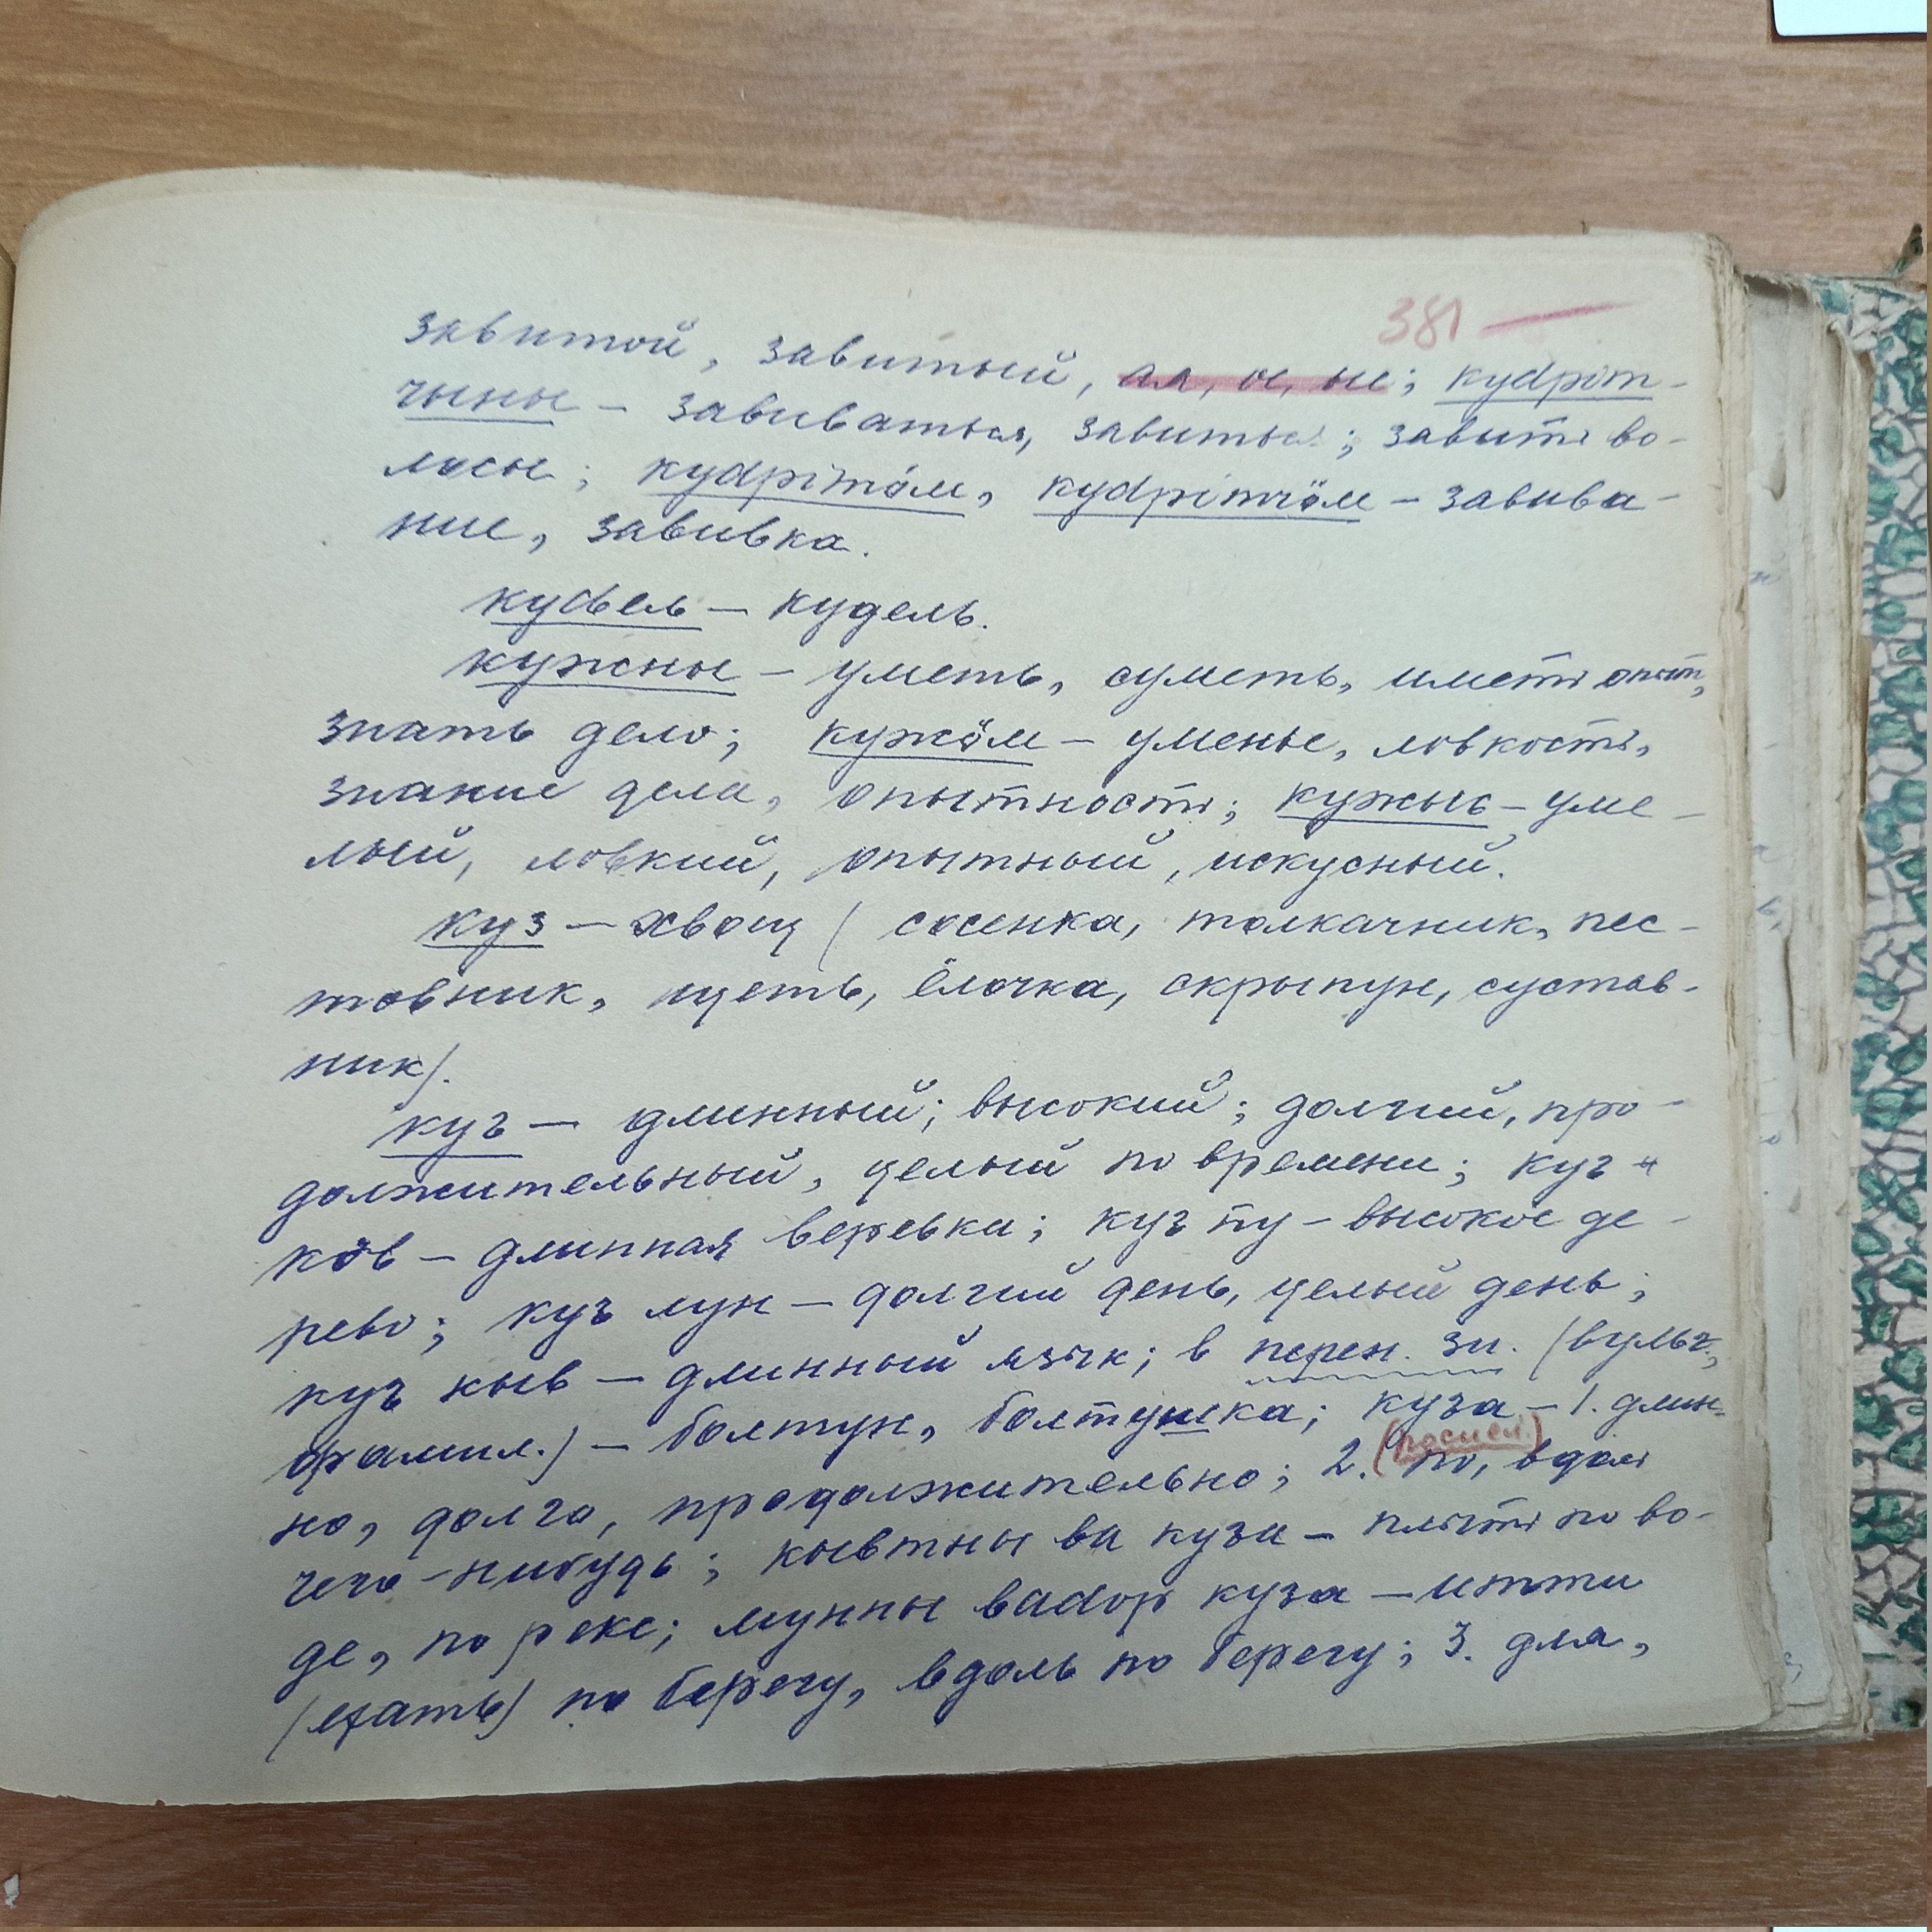 381 —
завитой, завитый, ая, ое, ые; кудріт-
чыны – завиваться, завиться; завить во-
лосы; кудрітӧм, кудрітчӧм – завива-
ние, завивка.
кудьель – кудель.
кужны – уметь, суметь, иметь опыт,
знать дело; кужӧм – уменье, ловкость,
знание дела, опытность; кужысь – уме-
лый, ловкий, опытный, искусный.
куз – хвощ (сосенка, толкачник, пес-
товник, пусть, ёлочка, скрыпун, сустав-
ник).
кузь – длинный; высокий; долгий, про-
должительный, целый по времени; кузь
кӧв – длинная веревка; кузь пу – высокое де-
рево; кузь лун – долгий день, целый день;
кузь кыв – длинный язык; в перен. зн. (вульг.,
фамил.) – болтун, болтушка; куза – 1. длин-
но, долго, продолжительно; 2. (послел.) по, вдоль
чего-нибудь; кывтны ва куза – плыть по во-
де, по реке; мунны вадор куза – итти
(ехать) по берегу, вдоль по берегу; 3. для,